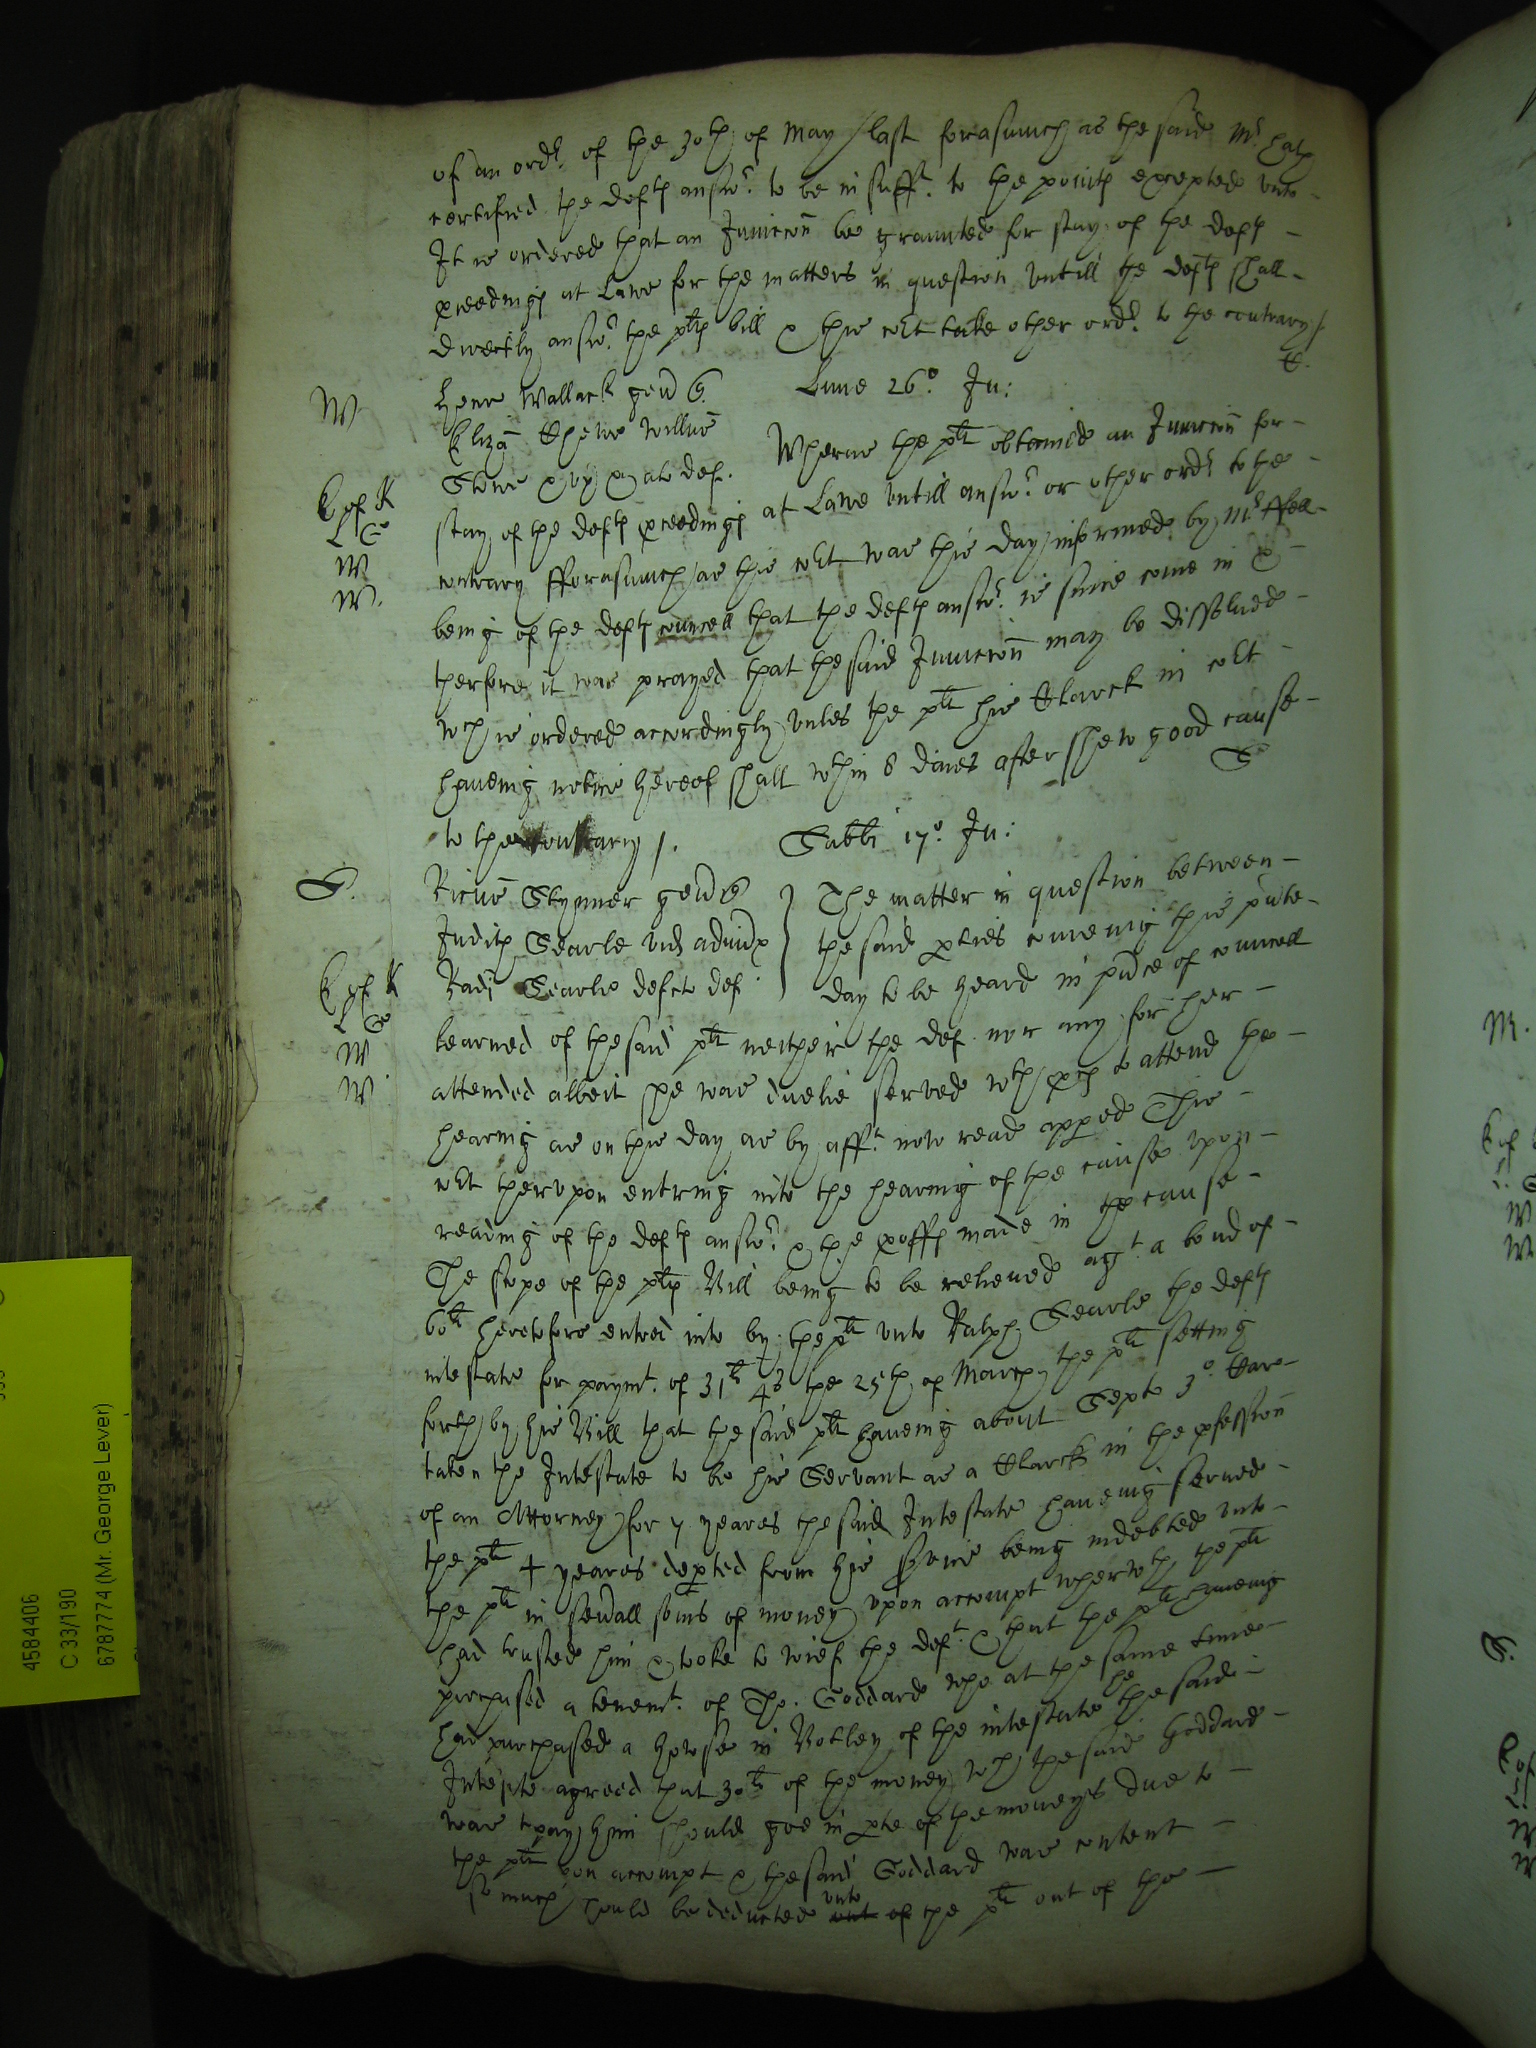 of an ordr. of the 30th of May last forasmuch as the said Mr.
certified the defts answr. to be insufft. to the points excepted unto
It is ordered that an Iniuccon be graunted for stay of the defts
pceedings at Lawe for the matters in question untill the defts shall
directly answr. the plts bill & this Court take other ordr. to the contrary /.
W
Henr Wallack gen &
Lune 26o. Iu:
Eliza
Wheras the plt obteined an Iniuccon for
Stone & ux al def.
stay of the defts pceedings at Lawe untill answr. or other ordr. to the
contrary fforasmuch as this Court was this day informed by Mr.
being of the defts councell that the defts answr. is since come in &
therfore it was prayed that the said Iniuccon may be dissolued
wch is ordered accordingly unles the plt his Clarck in Court
haueing notice hereof shall wthin 8 daies after shew good cause
to the contrary /.
Sabbi 17o. Iu:
S.
Ricus Skynner gen &
The matter in question between
Judith Searle vid admix
the said pties comeing this pnte
Radi Searle defct def.
day to be heard in pnce of councell
learned of the said plt neither the def. nor any for her
attended albeit she was duelie served wth pces to attend the
hearing as on this day as by afft. now read apped This
Court therupon entring into the hearing of the cause upon
reading of the defts answr. & the proffs made in the cause
The scope of the plts Bill being to be relieued agt. a bond of
60li heretofore entred into by the plt unto Ralph Searle the defts
intestate for paymt. of 31li 4s the 25th of March the plt setting
forth by his Bill that the said plt haueing about Septo 3o. Car
taken the Intestate to be his Servant as a Clarck in the pfession
of an Attorney for 7 yeares the said Intestate haueing serued
the plt 4 yeares depted from his svice being indebted unto
the plt in seuall soms of money upon accompt wherwth the plt
had trusted him & tooke to wief the deft. & that the plt haueing
purchased a tenemt. of Tho. Goddard who at the same time
had purchased a howse in Botley of the intestate he the said
Intestate agreed that 30li of the money wch the said Goddard
was to pay him should goe in pte of the moneys due to
the plt upon accompt & the said Goddard was content
so much should be deducted unto the plt out of the
4584406
C 33/190
6787774 (Mr. George Lever)